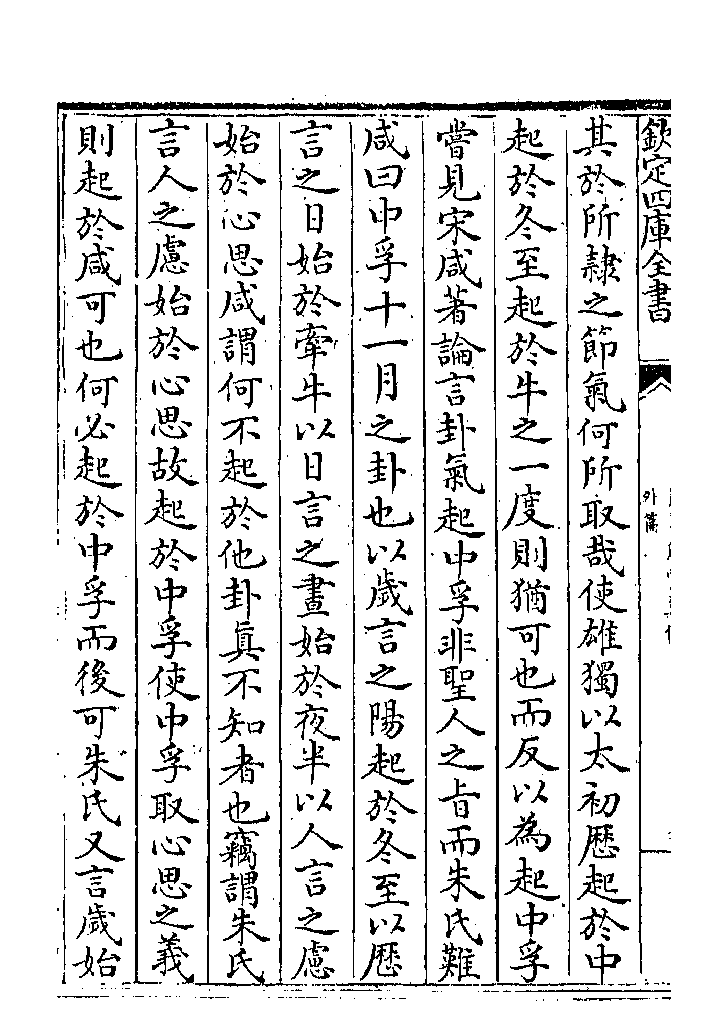 欽定四庫全書
外篇
其於所隷之節氣何所取哉使雄獨以太初厯起於中
起於冬至起於牛之一度則猶可也而反以為起中孚
嘗見宋咸著論言卦氣起中孚非聖人之旨而朱氏難
咸曰中孚十一月之卦也以歲言之陽起於冬至以厯
言之日始於牽牛以日言之晝始於夜半以人言之慮
始於心思咸謂何不起於他卦真不知者也竊謂朱氏
言人之慮始於心思故起於中孚使中孚取心思之義
則起於咸可也何必起於中孚而後可朱氏又言歲始